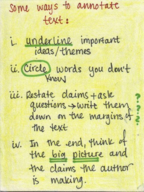 Some ways to annotate
text:
i. underline important
ideas/themes
ii. Circle words you don't
know
iii. Restate claims + ask
questions → write them
down on the margins of
the text
iv. In the end, think of
the big picture and
the claims the author
is making.
???